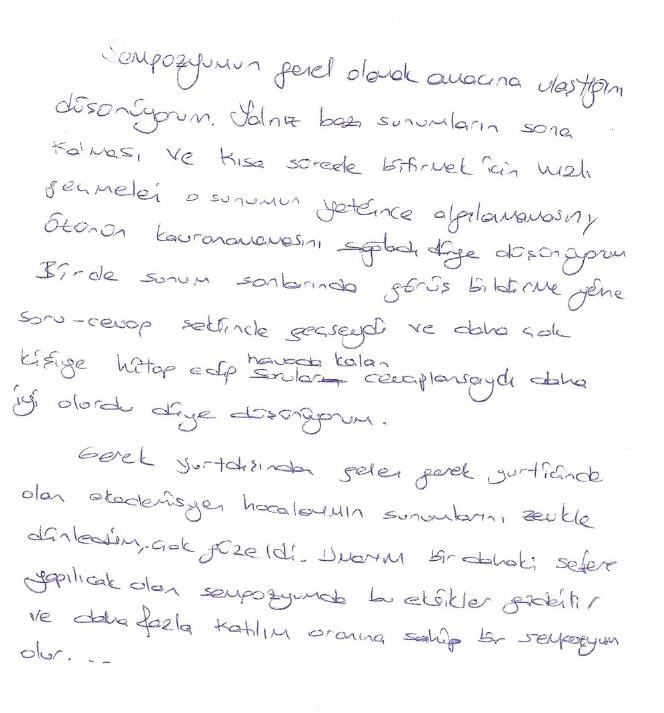 Sempozyumun genel olarak amacına ulaştığını
düşünüyorum. Yalnız bazı sunumların sona
kalması ve kısa sürede bitirmek için hızlı
geçmeleri o sunumun yeterince algılanamamasını,
ötürün kavranamamasını sağladı diye düşünüyorum
Birde sunum sonlarında görüş bildirme yine
soru-cevap şeklinde geçseydi ve daha çok
kişiye hitap edip havada kalan sorular cevaplansaydı daha
iyi olurdu diye düşünüyorum.
Gerek yurtdışından gelen gerek yurtiçinde
olan akademisyen hocalarımın sunumlarını zevkle
dinledim, çok güzeldi. Umarım bir dahaki sefere
yapılıcak olan sempozyumda bu eksikler giderilir
ve daha fazla katılım oranına sahip bir sempozyum
olur. ...